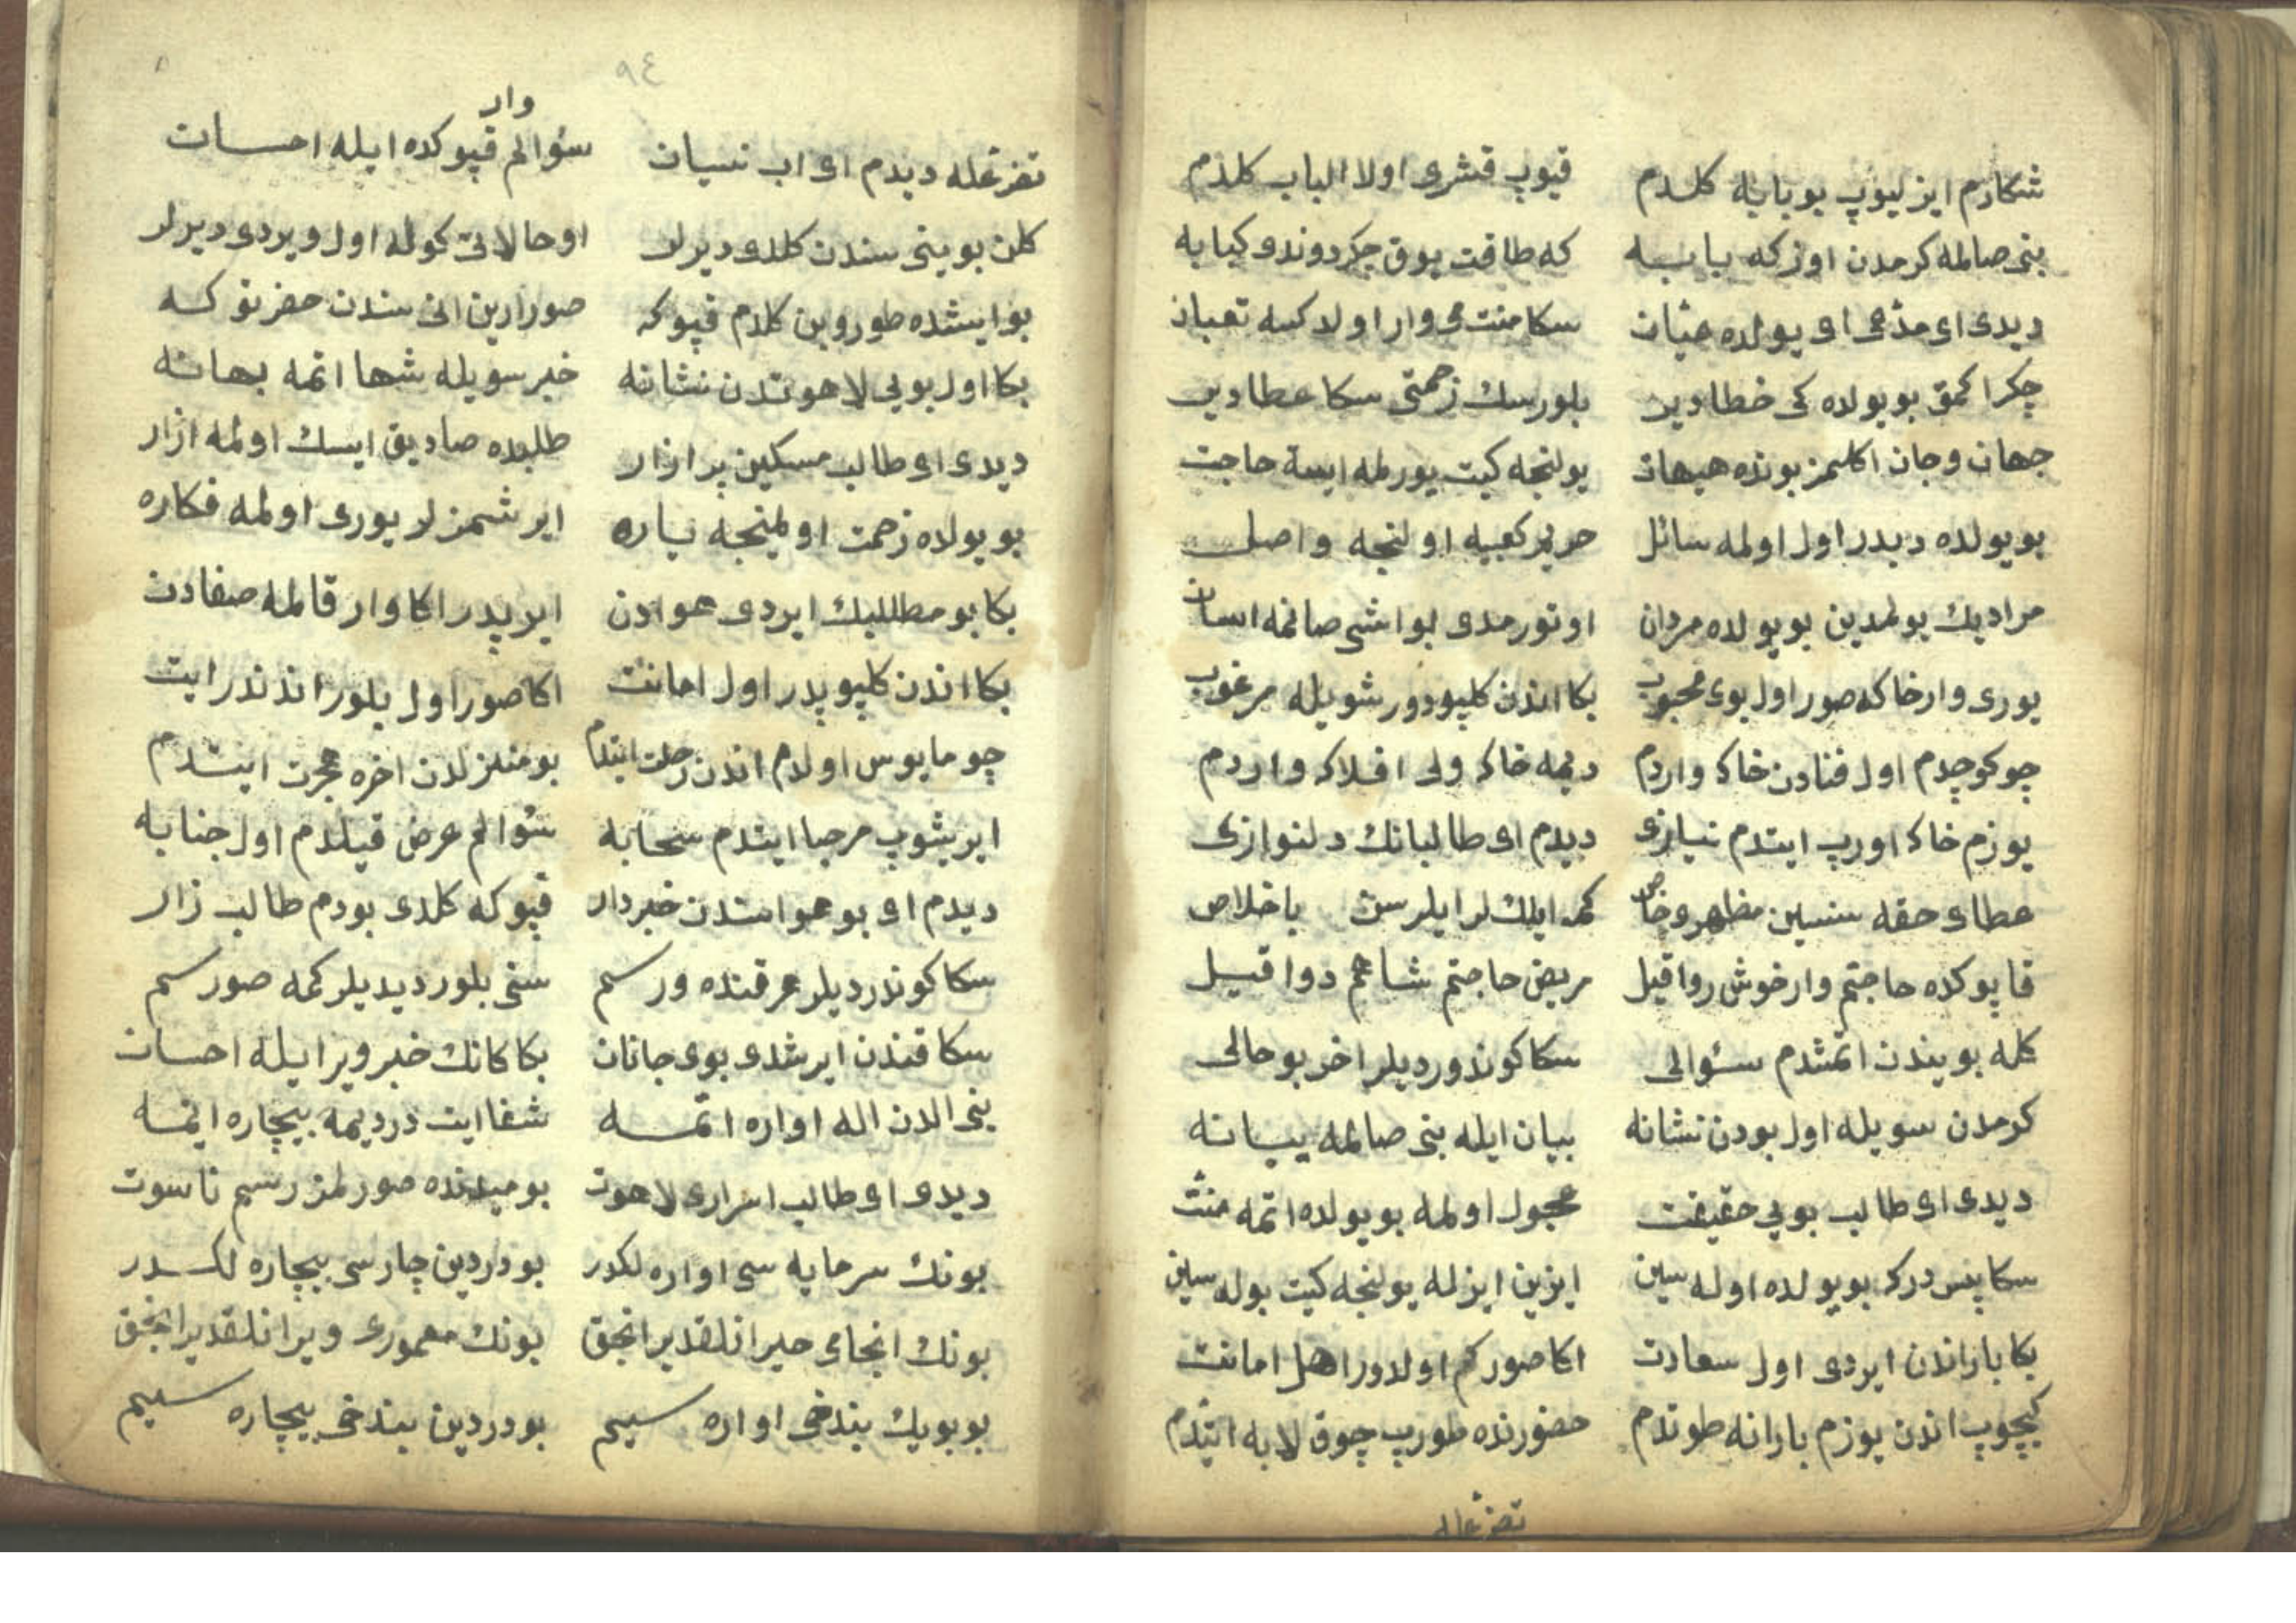 شكارم ايزليوپ بو بابه كلدم    قيوپ قشرى اولا الباب كلدم
بنى صالمه كرمدن اوزكه بابه    كه طاقت يوق جكر دوندى كبابه
ديدى اى مدعى اى يولده عثيان    سكا منت مى وار اولاكسه تعبان
چكرا كمق بو يولده كى خطادير    بلورسك زحمتى سكا عطادير
جهان و جان اكلمز بونده هيهات    يولنجه كيت يورلمه ايسه حاجت
بو يولده ديدر اول اولمه سائل    حرير كعبيه اولنجه واصل
مراديك بولمدين بو يولده مردان    اوتورمدى بو اشى صانمه اسان
يورى وار خاكه صور اول بوى محبوب    بكا اندن كليودور شويله مرغوب
چو كوچدم اول فنادن خاكه واردم    ديمه خاكه ولى افلاكه واردم
يوزم خاكه اورپ ايتدم نيازى    ديدم اى طالبانك دلنوازى
عطاى حقه سنسين مظهر و خاص    كمه ايلك لر ايلرسن باخلاص
قاپوكده حاجتم وار خوش روا قيل    مريض حاجتم شاهم دوا قيل
كله بويندن اتمشدم سئوالى    سكا كوندورديلر اخر بو حالى
كرمدن سويله اول بودن نشانه    بيان ايله بنى صالمه يبانه
ديدى اى طالب بوى حقيقت    عجول اولمه بو يولده اتمه منت
سكا پس درك بو يولده اوله سين    ايزين ايزله يولنجه كيت بوله سين
بكا باراندن ايردى اول سعادت    اكا صور كم اولدور اهل امانت
كيچوپ اندن يوزم بارانه طوتدم    حضورنده طورپ چوق لابه اتدم
تضرعله
٩٤
تضرعله ديدم اى اب نيسان    سؤالم وار قپوكده ايله احسان
كلن بوينى سندن كلدى ديرلر    او حالاتى كوله اول ويردى ديرلر
بو ايشده طوروبن كلدم قپوكه    صورارين انى سندن حضرتوكه
بكا اول بوى لاهوتدن نشانه    خبر سويله شها اتمه بهانه
ديدى اى طالب مسكين پر ازار    طلبده صاديق ايسك اولمه ازار
بو يولده زحمت اولمينجه ياره    ايرشمزلر يورى اولمه فكاره
بكا بو مطلبيك ايردى هوادن    ايرپدر اكا وار قالمه صفادن
بكا اندن كليوپدر اول امانت    اكا صور اول بلور اندندر ايت
چو مايوس اولام اندن رحلت ايتدم    بو منزلدن اخره هجرت ايتدم
ايريشوپ مرحبا ايتدم سحابه    سئوالم عرض قيلدم اول جنابه
ديدم اى بو هواسندن خبردار    قپوكه كلدى بودم طالب زار
سكا كوندرديلر هر قنده ورسم    سنى بلور ديديلر كمه صورسم
سكا قندن ايرشدى بوى جانان    بكا كانك خبر وير ايله احسان
بنى الدن اله اواره اتمه    شفا ايت درديمه بيچاره ايتمه
ديدى اى طالب اسرارى لاهوت    بو ميدنده صورلمز رسم ناسوت
بونك سرمايه سى اواره لكدر    بو دردين چارسى بيچاره لكدر
بونك انجامى حيرانلقدير انجق    بونك معمورى ويرانلقدير انجق
بو بويك بندخى اواره سيم    بو دردين بيندخى بيچاره سيم